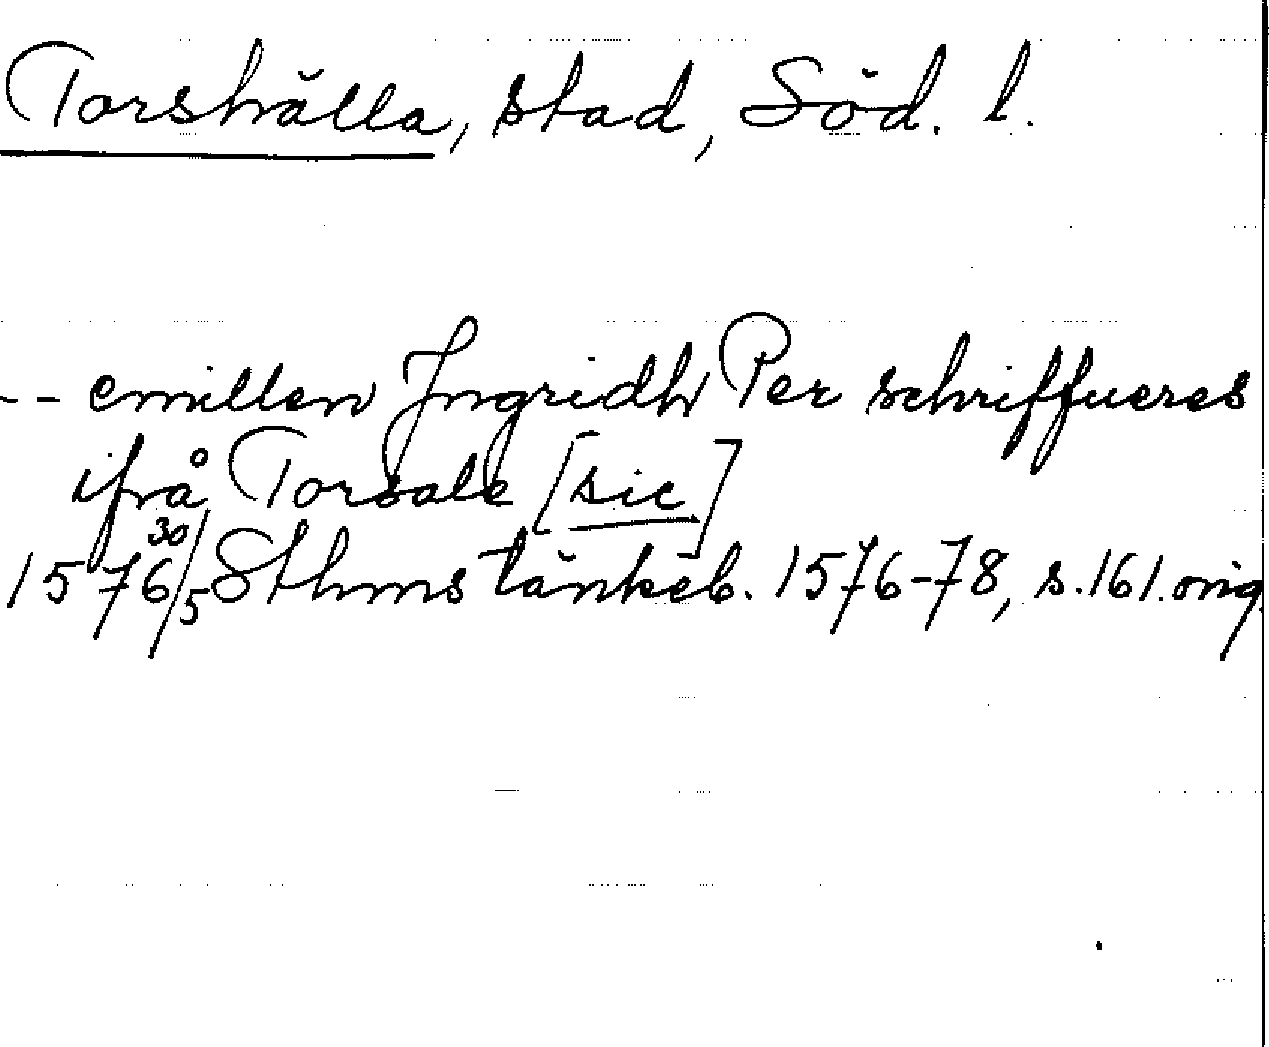 Torshälla, stad, Söd. l.
-- emillen Jngridh Per schriffueres
ifrå Torsale [sic]
1576 30/5 Sthms tänkeb. 1576-78, s.161.orig.